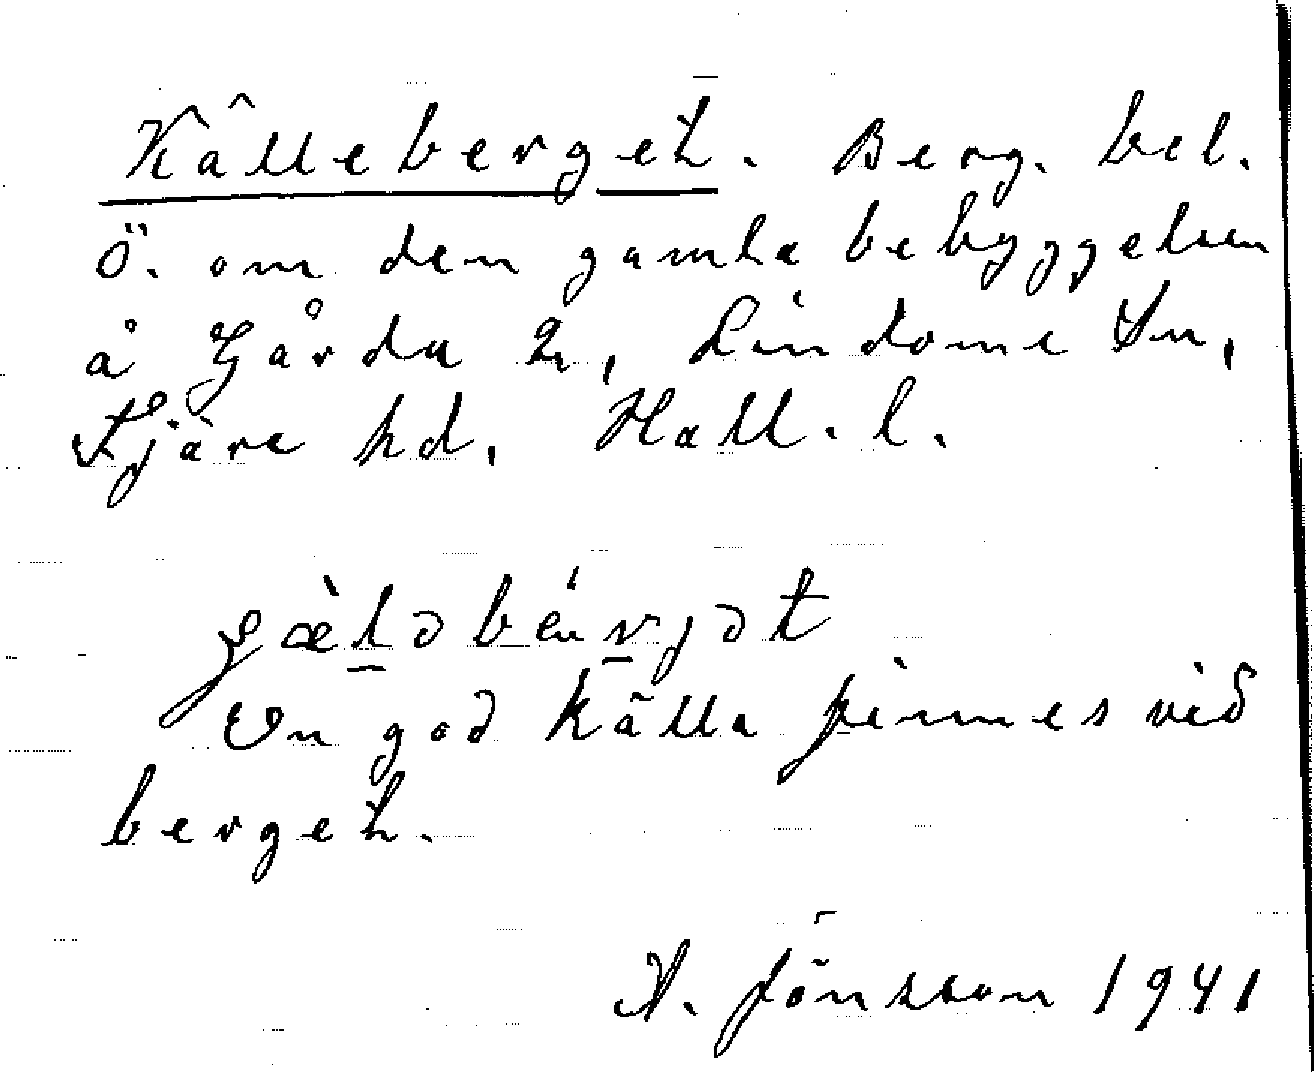 Källeberget. Berg. bel.
Ö. om den gamla bebyggelsen
å Gårda 2, Lindome Sn,
Fjäre hd, Hall. l.
En god källa finnes vid
berget.
A. Jönsson 1941